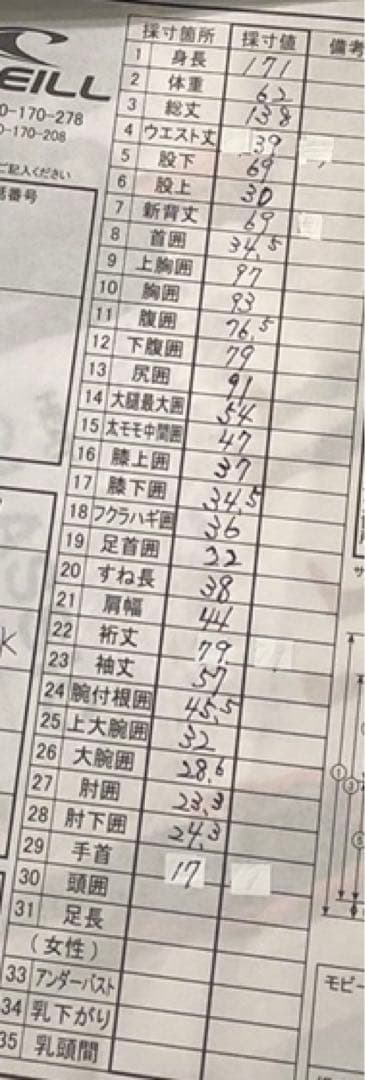 EILL
0-170-278
0-170-208
ご記入ください
話番号
採寸箇所 採寸値 備考
1 身長 171
2 体重 62
3 総丈 138
4 ウエスト丈 39
5 股下 69
6 股上 30
7 新背丈 69
8 首囲 34.5
9 上胸囲 97
10 胸囲 93
11 腹囲 76.5
12 下腹囲 79
13 尻囲 91
14 大腿最大囲 54
15 太モモ中間囲 47
16 膝上囲 37
17 膝下囲 34.5
18 フクラハギ囲 36
19 足首囲 22
20 すね長 38
21 肩幅 44
22 裄丈 79
23 袖丈 57
24 腕付根囲 45.5
25 上大腕囲 32
26 大腕囲 28.6
27 肘囲 23.3
28 肘下囲 24.3
29 手首 17
30 頭囲
31 足長
(女性)
33 アンダーバスト
34 乳下がり
35 乳頭間
K
サ
① ③ ⑤
モビー